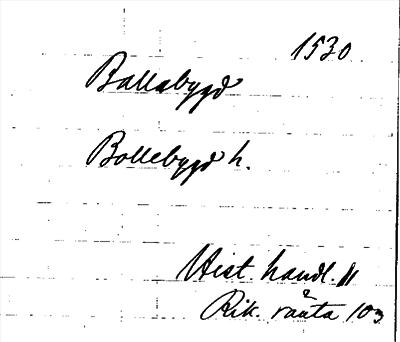 1530
Ballabygd
Bollebygd h.
Hist. handl. 11
Rik. ränta 103